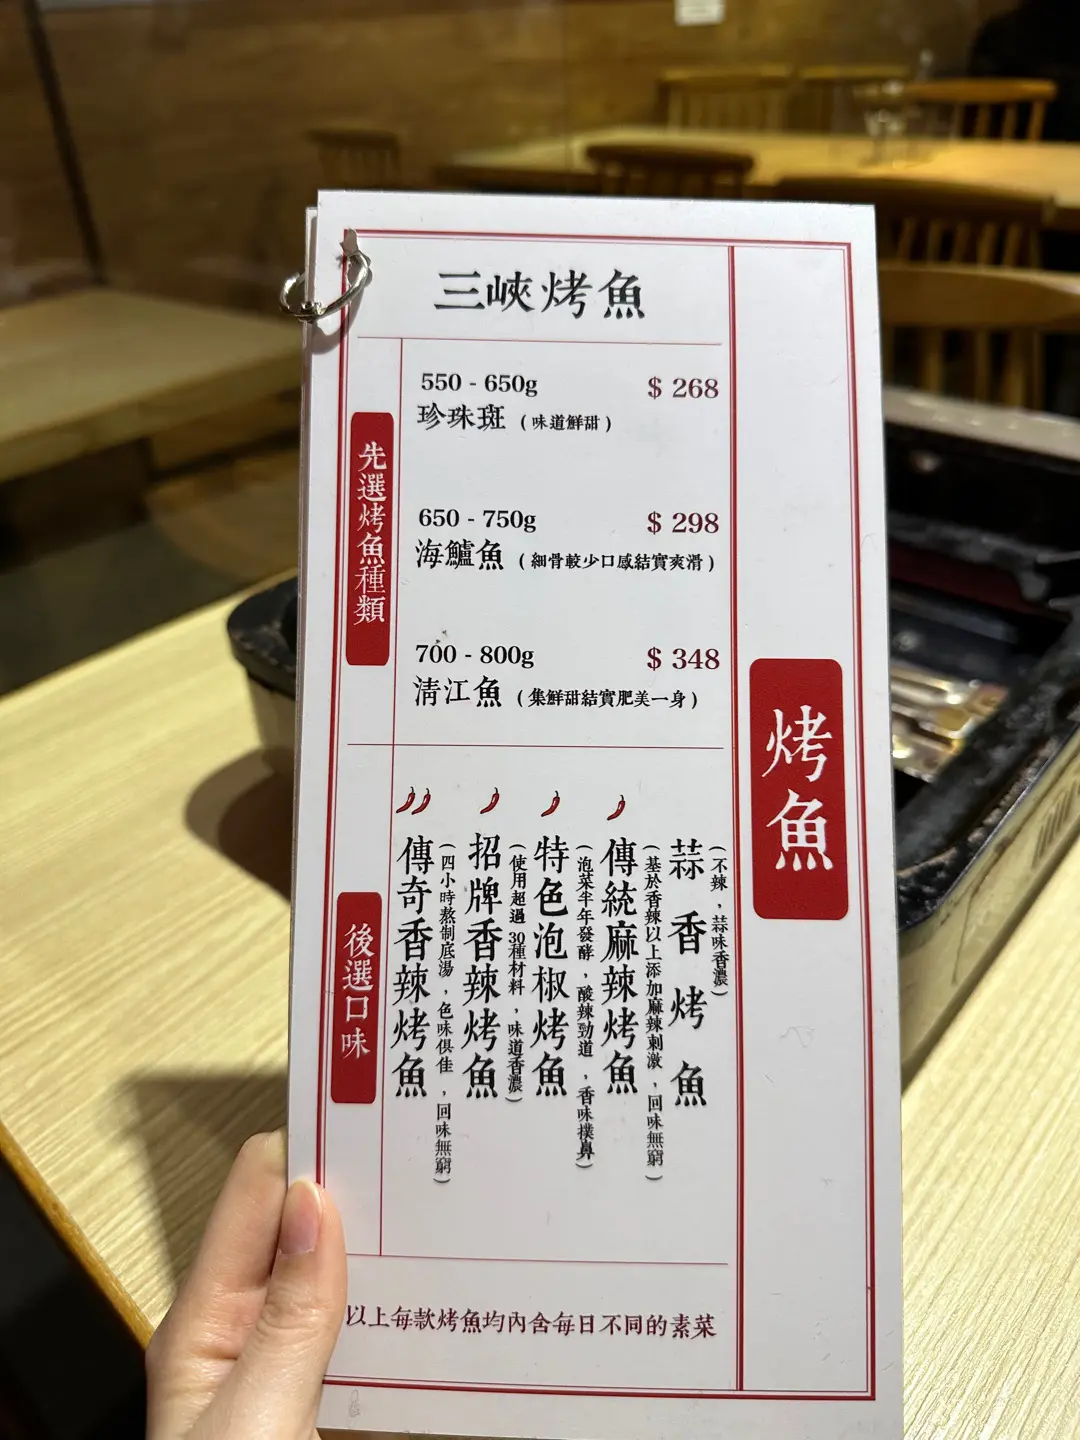 三峽烤魚
先選烤魚種類
550 - 650g $ 268
珍珠斑 (味道鮮甜)
650 - 750g $ 298
海鱸魚 (細骨較少口感結實爽滑)
700 - 800g $ 348
清江魚 (集鮮甜結實肥美一身)
烤魚
後選口味
蒜香烤魚
(不辣，蒜味香濃)
傳統麻辣烤魚
(基於香辣以上添加麻辣刺激，回味無窮)
特色泡椒烤魚
(泡菜半年發酵，酸辣勁道，香味撲鼻)
招牌香辣烤魚
(使用超過30種材料，味道香濃)
傳奇香辣烤魚
(四小時熬制底湯，色味俱佳，回味無窮)
以上每款烤魚均內含每日不同的素菜